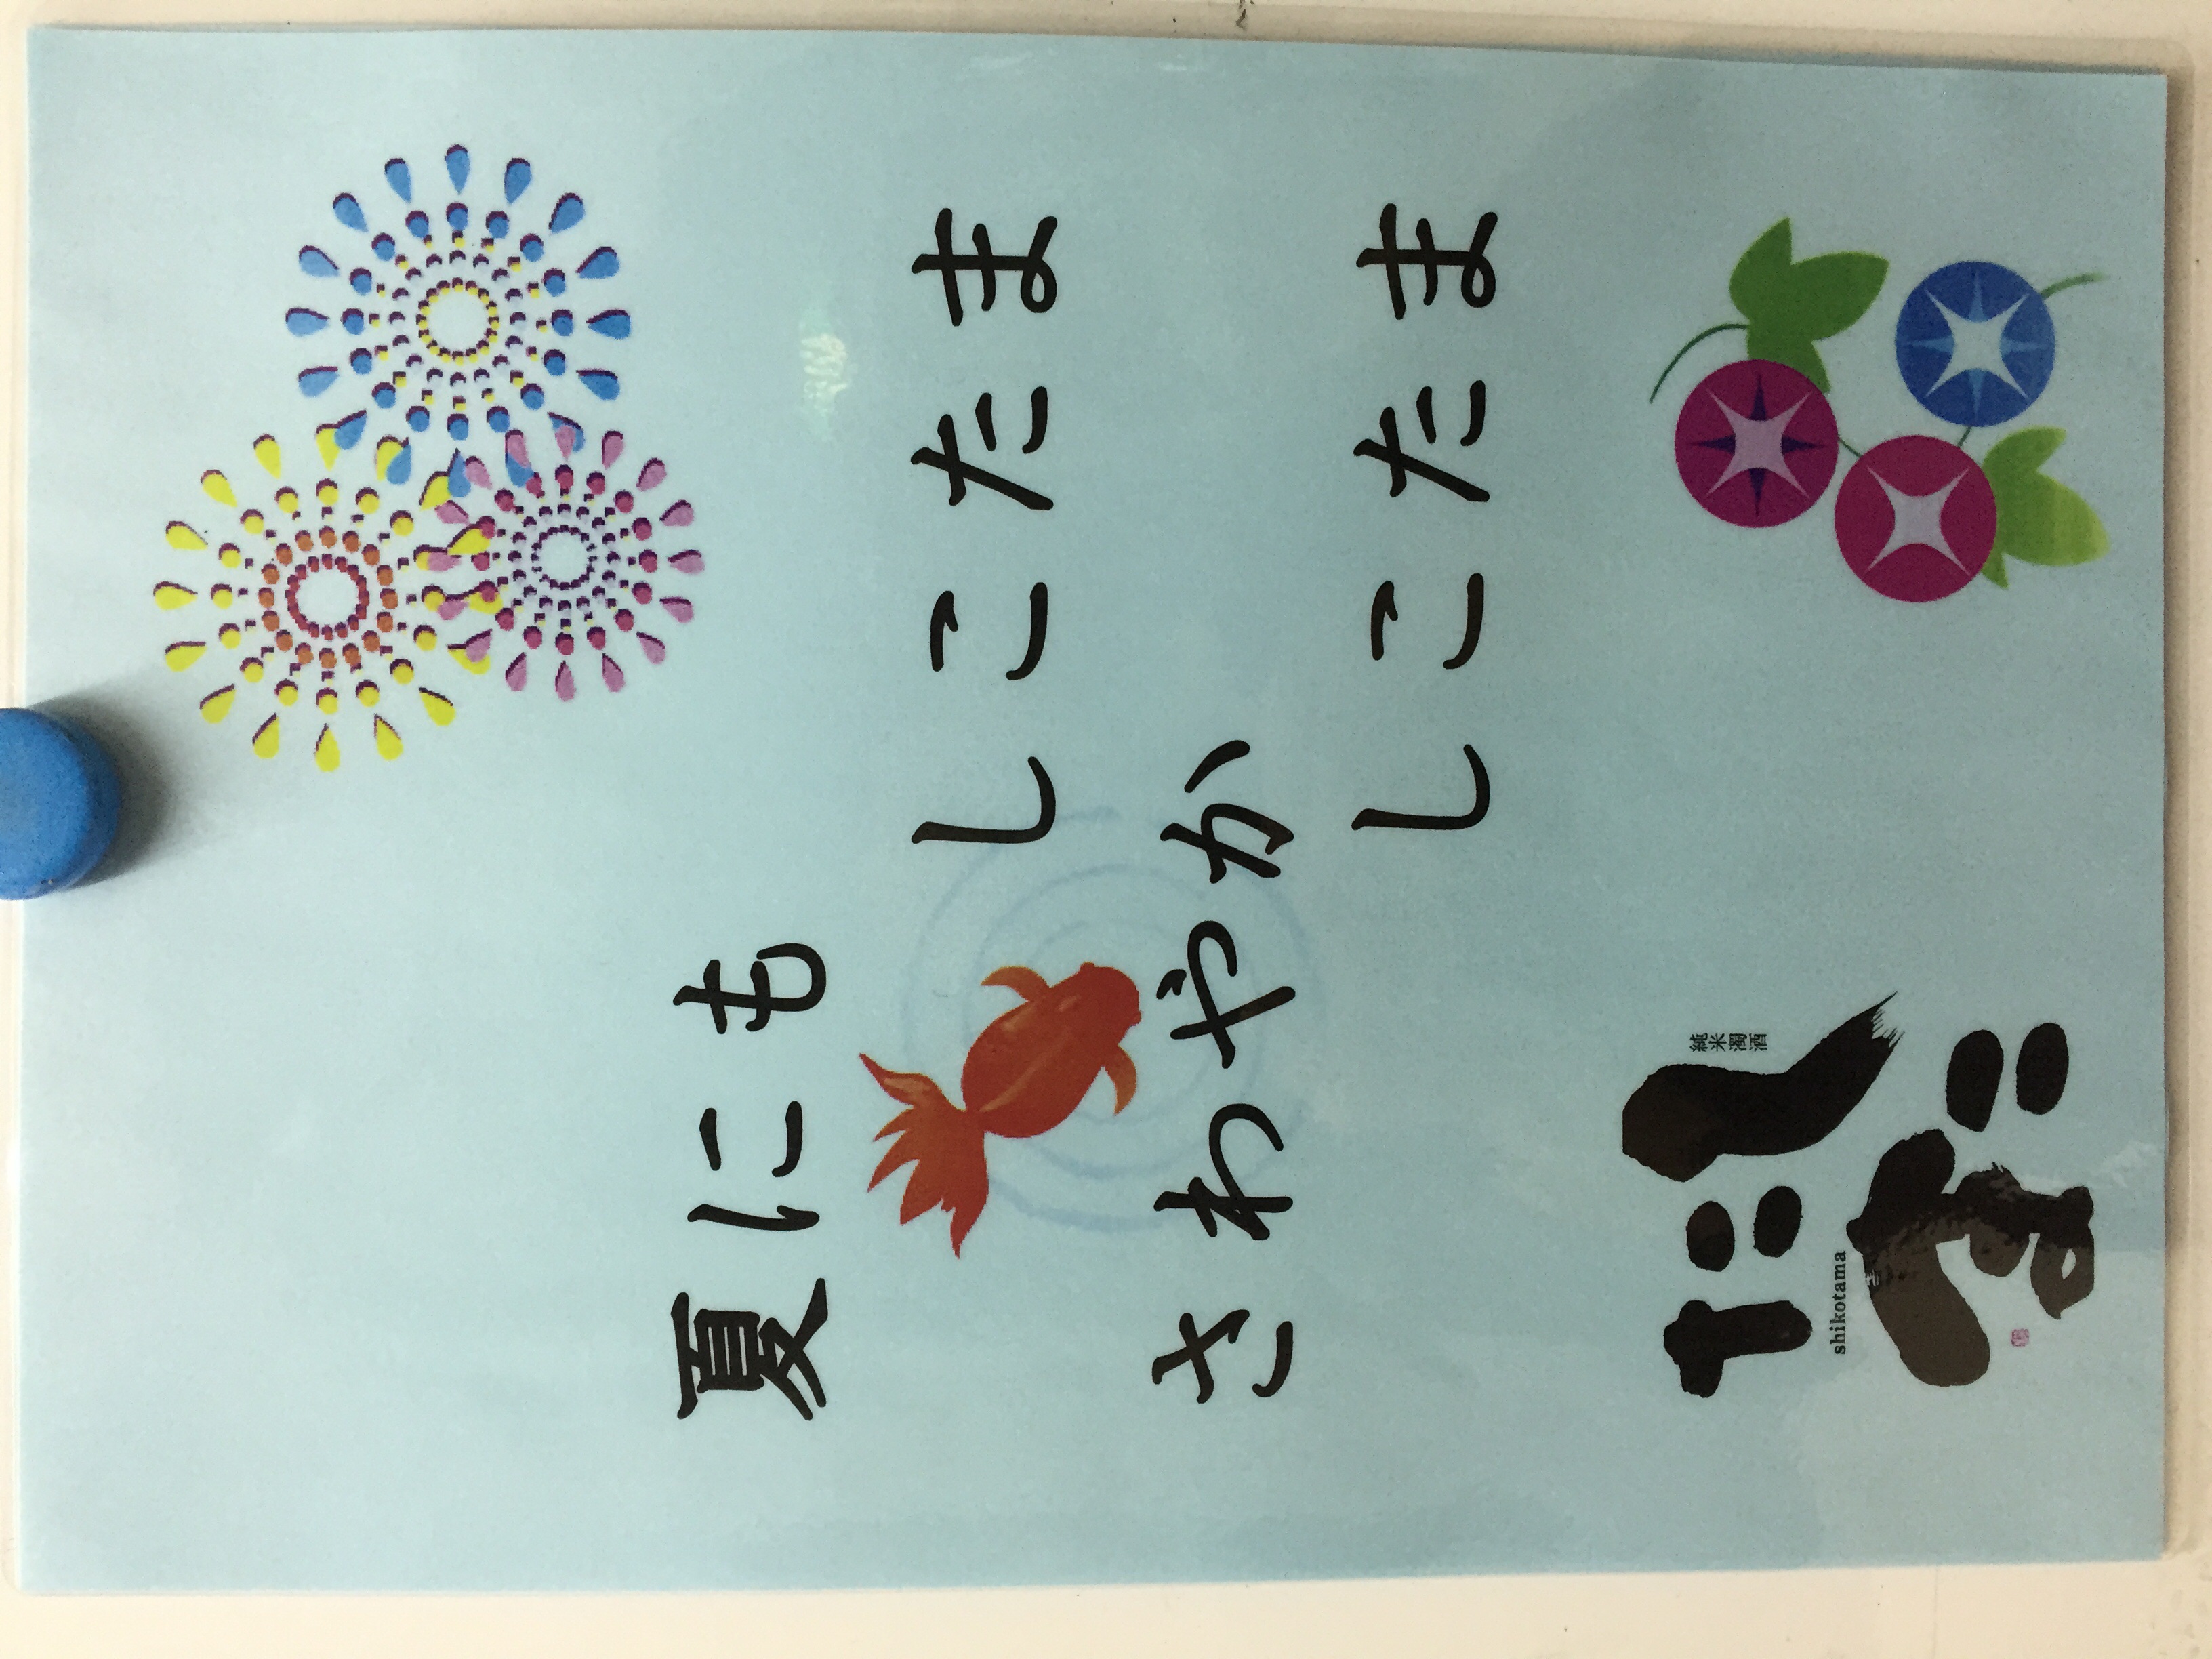 夏にも
しこたま
さわやか
しこたま
純米濁酒
しこ
たま
shikotama